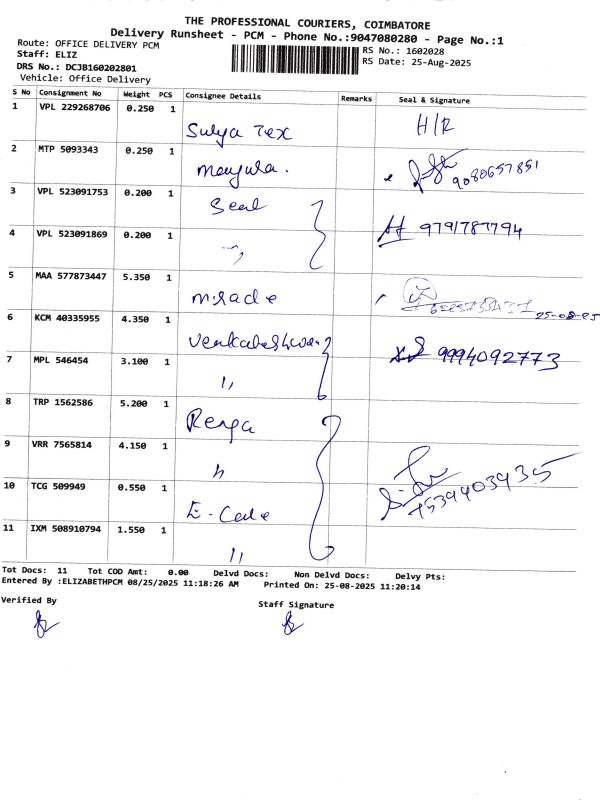 THE PROFESSIONAL COURIERS, COIMBATORE
Delivery Runsheet - PCM - Phone No.:9047080280 - Page No.:1
Route: OFFICE DELIVERY PCM
RS No.: 1602028
Staff: ELIZ
RS Date: 25-Aug-2025
DRS No.: DCJB160202801
Vehicle: Office Delivery
S No Consignment No Weight PCS Consignee Details Remarks Seal & Signature
1 VPL 229268706 0.250 1 Surya Tex H/R
2 MTP 5093343 0.250 1 Manjula. 9080657851
3 VPL 523091753 0.200 1 Seal
4 VPL 523091869 0.200 1 " 9791787794
5 MAA 577873447 5.350 1 Miracle 25-08-25
6 KCM 40335955 4.350 1
7 MPL 546454 3.100 1 " 9994092773
8 TRP 1562586 5.200 1 Renga
9 VRR 7565814 4.150 1 "
10 TCG 509949 0.550 1 E-Cade
11 IXM 508910794 1.550 1 "
Tot Docs: 11 Tot COD Amt: 0.00 Delvd Docs: Non Delvd Docs: Delvy Pts:
Entered By :ELIZABETHPCM 08/25/2025 11:18:26 AM Printed On: 25-08-2025 11:20:14
Verified By
Staff Signature